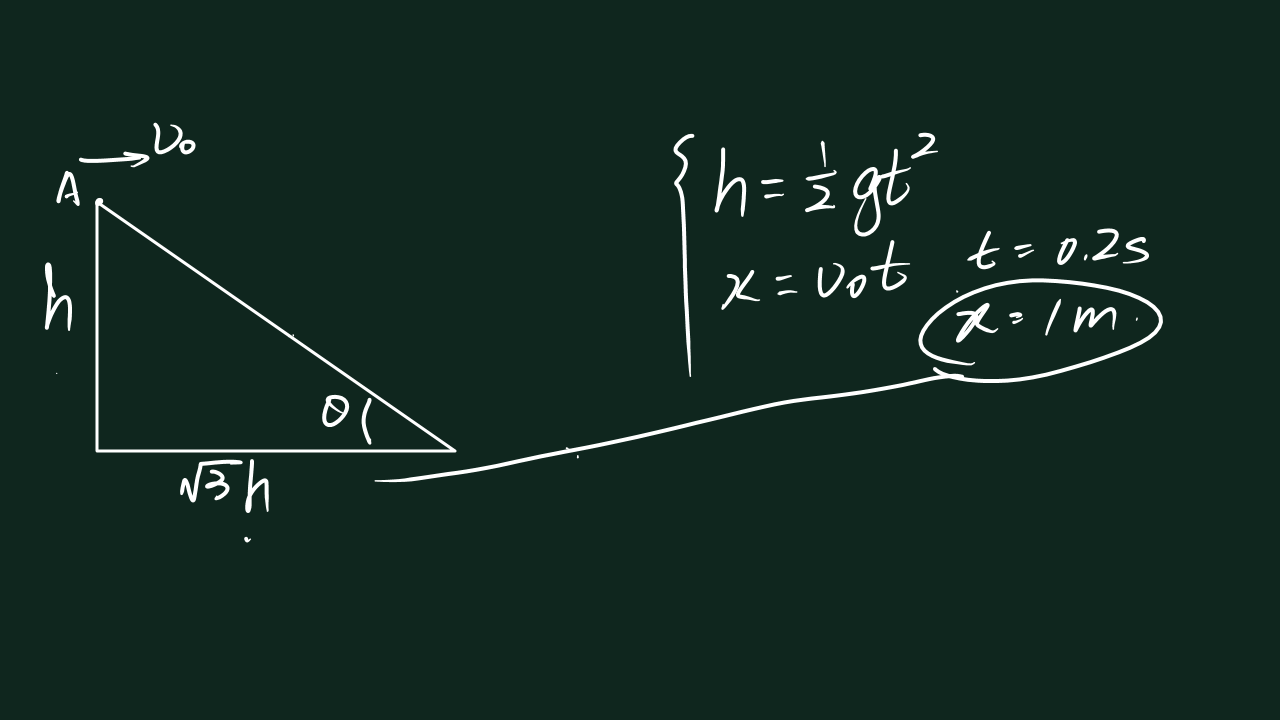 υ₀
A
h
θ
√3 h
h = 1/2 gt²
x = υ₀t
t = 0.2s
x = 1m